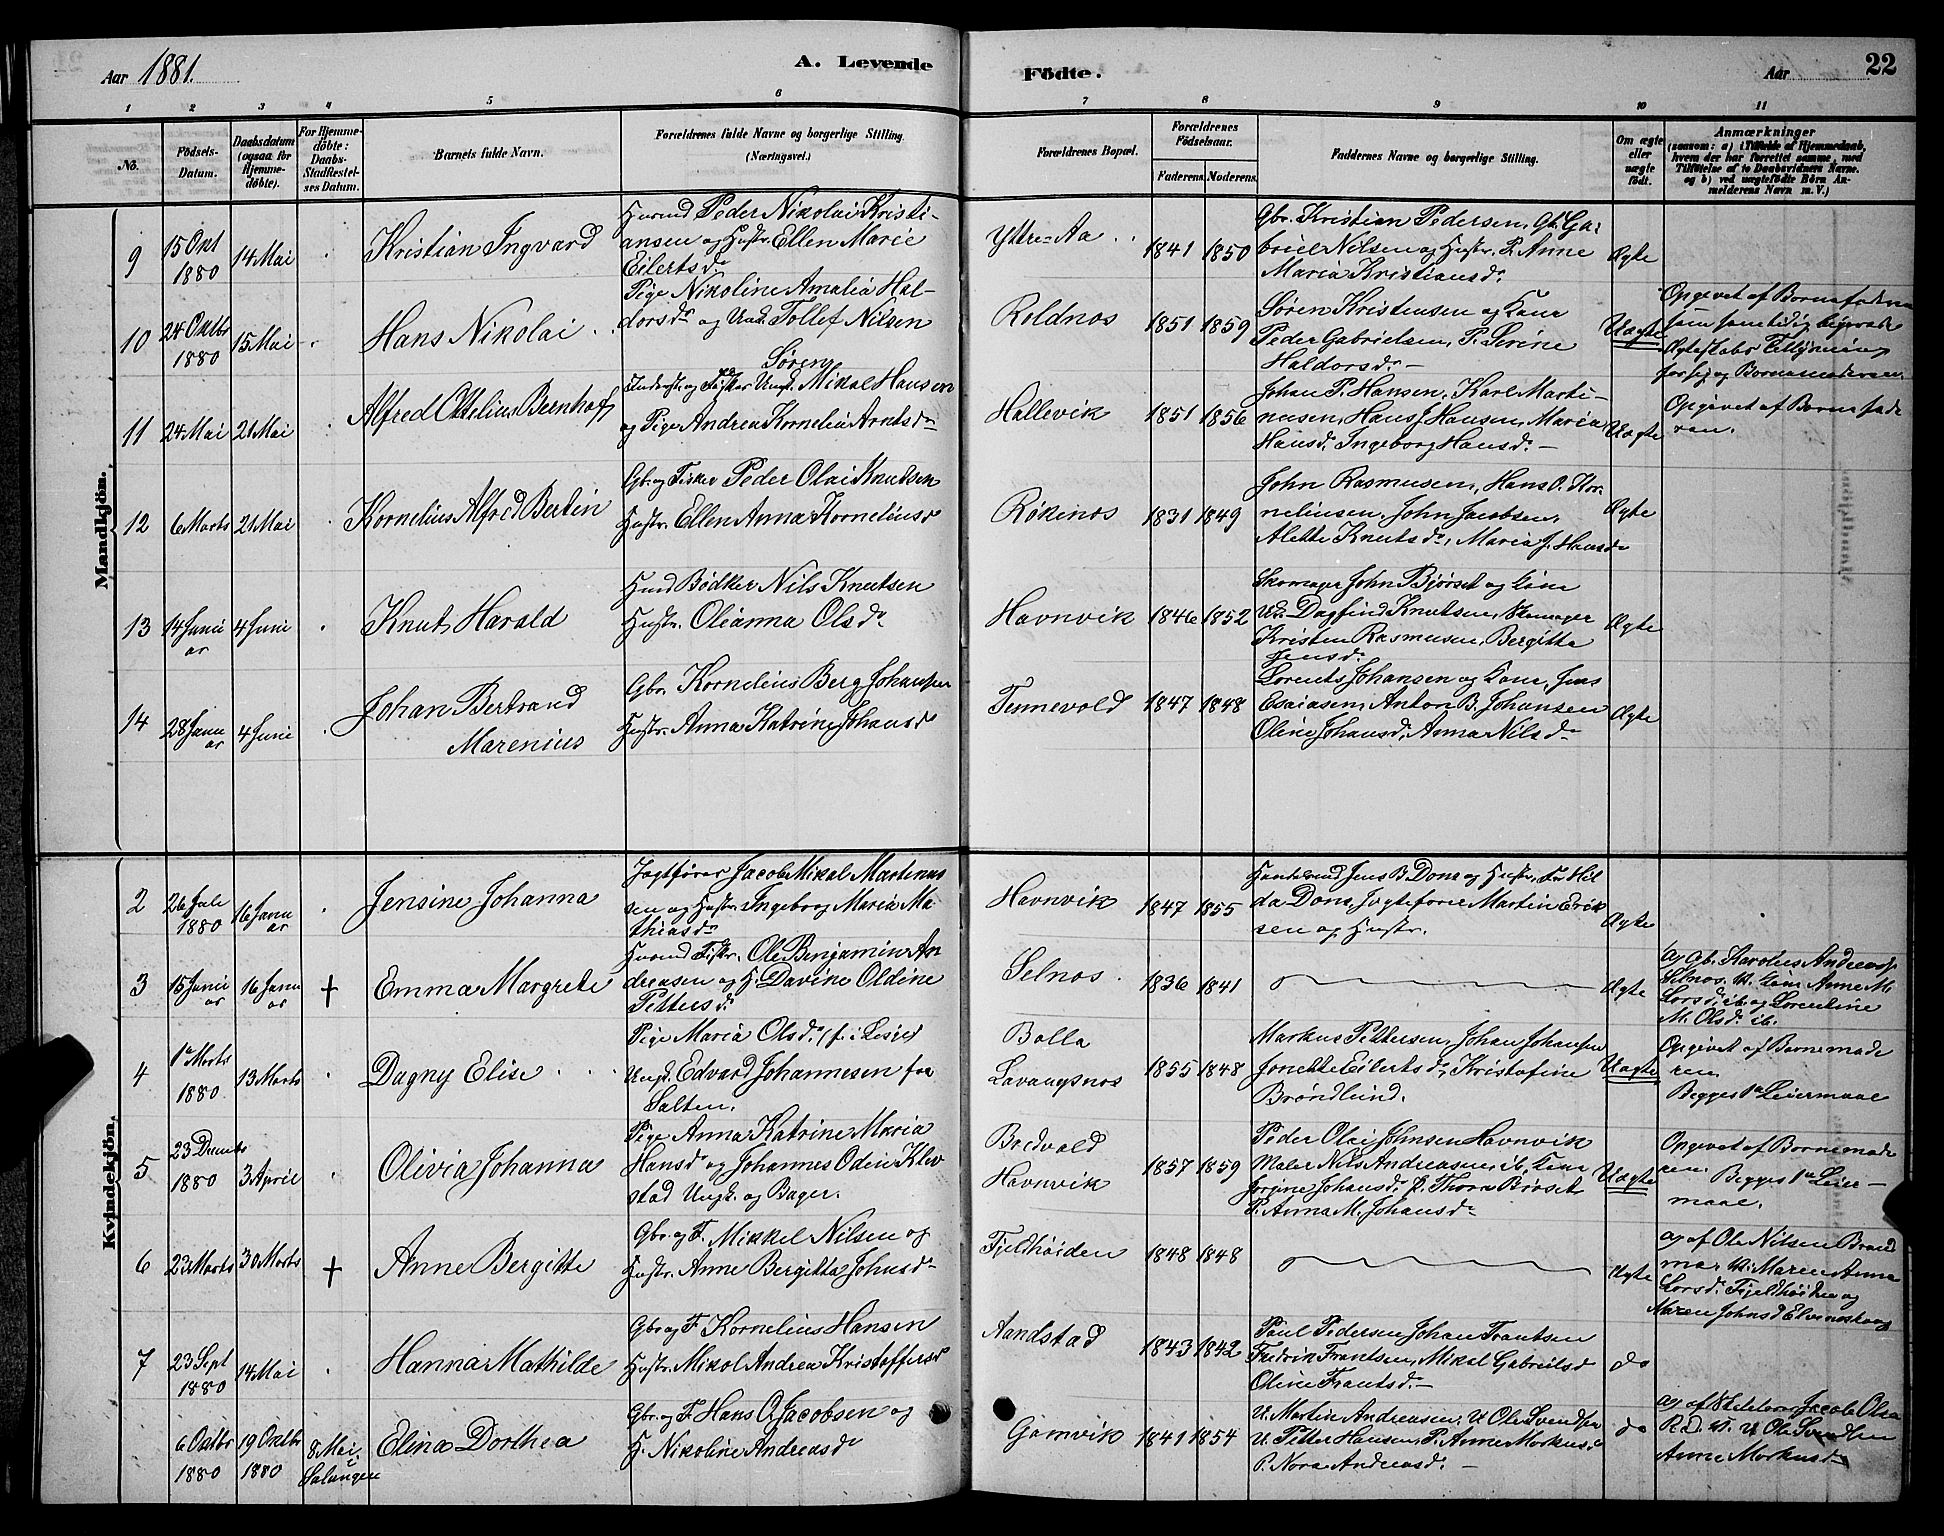 Aar 1881.
A. Levende
Födte.
Aar
22
1 2 3 4 5 6 7 8 9 10 11
No.
Födsels-
Datum.
Daabsdatum
(ogsaa for
Hjemme-
döbte).
For Hjemme-
döbte:
Daabs-
Stadfæstel-
ses Datum.
Barnets fulde Navn.
Forældrenes fulde Navne og borgerlige Stilling.
(Næringsvei.)
Forældrenes Bopæl.
Forældrenes
Födselsaar.
Faderens. Moderens.
Faddernes Navne og borgerlige Stilling.
Om ægte
eller
uægte
födt.
Anmærkninger
(saasom: a) i Tilfælde af Hjemmedaab,
hvem der har forrettet samme, med
Tilföielse af to Daabsvidners Navne.
og b) ved uægtefödte Börn An-
melderens Navn m. V.)
Mandkjön.
9
15 Okt
1880
14 Mai
Kristian Ingvard
Huusmd Peder Nikolai Kristi-
ansen og Hustr. Ellen Marie
Eilertsdr
Yttre-Aa
1841 1850
Gbr. Kristian Pedersen, Gb. Ga-
briel Nilsen og Hustr. P. Anne
Maria Kristiansdr
Ægte
10
24 Oktbr
1880
15 Mai
Hans Nikolai
Pige Nikoline Amalia Hal-
dorsdr og Ungk. Tollef Nilsen
Roldnos
1851 1859
Søren Kristensen og Kone
Peder Gabrielsen, P. Serine
Haldorsdr
Uægte
Opgivet af Barnefaderen
som samtidig begjærede
Ægteskabs Tillysning
for sig og Barnemoderen
11
24 Mai
21 Mai
Alfred Ottelius Bernhof
Søren
Fisker Ungk. Mikal Hansen
og Pige Andrea Kornelia Arntsdr
Hallevik
1851 1856
Johan P. Hansen, Karl Marti-
nusen, Hans J. Hansen, Maria
Hansdr Ingeborg Hansdr
Uægte
Opgivet af Barnefade
ren.
12
6 Marts
21 Mai
Kornelius Alfred Bertin
Gbr. og Fisker Peder Olai Knutsen
Hustr. Ellen Anna Korneliusdr
Røkenos
1831 1849
John Rasmusen, Hans O. Kor-
neliusen, John Jacobsen,
Alette Knutsdr, Maria J. Hansdr
Ægte
13
14 Janu
ar
4 Juni
Knut Harald
Husmd Bødker Nils Knutsen
Hustr. Olianna Olsdr
Havnvik
1846 1852
Skomager John Bjørset og Kone
U. Dagfind Knutsen, Skomager
Kristen Rasmusen, Bergitte
Jensdr
Ægte
14
28 Janu
ar
4 Juni
Johan Bertrand
Marenius
Gbr. Kornelius Berg Johansen
Hustr. Anna Katrine Johansdr
Tennevold
1847 1848
Lorents Johansen og Kone, Jens
Esaiasen, Anton B. Johansen
Oline Johansdr, Anna Nilsdr
Ægte
Kvindekjön.
2
26 Juli
1880
16 Janu
ar
Jensine Johanna
Jagtfører Jacob Mikal Martinus
sen og Hustr. Ingeborg Maria Ma
thiasdr
Havnvik
1847 1855
Handelsmd Jens B. Dons og Hustr, Fr. Hil-
da Dons, Jagtfører Martin Erik
sen og Hustr.
Ægte
3
15 Janu
ar
16 Janu
ar
+
Emma Margrete
Husmd Fisker. Ole Benjamin An
dreasen og H. Davine Oldine
Pettersdr
Selnos
1836 1841
Ægte
a) Gb. Karolius Andreas.
Selnos. b. Kone Anne M.
Larsdr. ib. og Lorentine
M. Olsdr. ib.
4
1de Marts
1880
13 Marts
Dagny Elise
Pige Maria Olsdr. (f. i Lesje)
Ungk. Edvard Johannesen fra
Salten.
Bolla
Lavangsnos
1855 1848
Markus Pettersen, Johan Johansen
Jonette Eilertsdr, Kristofine
Brøndlund.
Uægte
Opgivet af Barnemode
ren
Begges 1ste Leiermaal
5
23 Decmbr
1880
3 April
Olivia Johanna
Pige Anna Katrine Maria
Hansdr og Johannes Odin Klev
stad Ungk. og Bager.
Bredvold
Havnvik
1857 1859
Peder Olai Johnsen Havnvik
Maler Nils Andreasen ib. Kone
Jørgine Johansdr P. Thora Brøset
P. Anna M. Johansdr
Uægte
Opgivet af Barnemode
ren. Begges 1ste Leier-
maal.
6
23 Marts
30 Marts
+
Anne Bergitte
Gbr. og F. Mikkel Nilsen og
Hustr. Anne Bergitta Johnsdr
Fjeldhøiden
1848 1848
Ægte
a) af Ole Nilsen Brand
mo. b. Maren Anna
Larsdr. Fjeldhøiden og
Maren Johnsd Elvenskoug
7
23 Sept
1880
14 Mai
Hanna Mathilde
Gbr. og F. Kornelius Hansen
Hustr. Mikol Andrea Kristoffersdr
Aandstad
1843 1842
Paul Pedersen, Johan Frantsen
Fredrik Frantsen, Mikal Gabrielsd
Oline Frantsdr
do
6 Oktbr
1880
19 Oktbr
1880
8 Mai
i
Salangen
Elina Dorthea
Gbr. og F. Hans O. Jacobsen og
H. Nikoline Andreasdr
Gamvik
1841 1854
U. Martin Andreasen, U. Ole Svendsen
U. Petter Hansen, P. Anne Markusdr
P. Nora Andreasdr.
do
a) af Jacob Olsen
U Ole Svendsen
Anne Markusdr